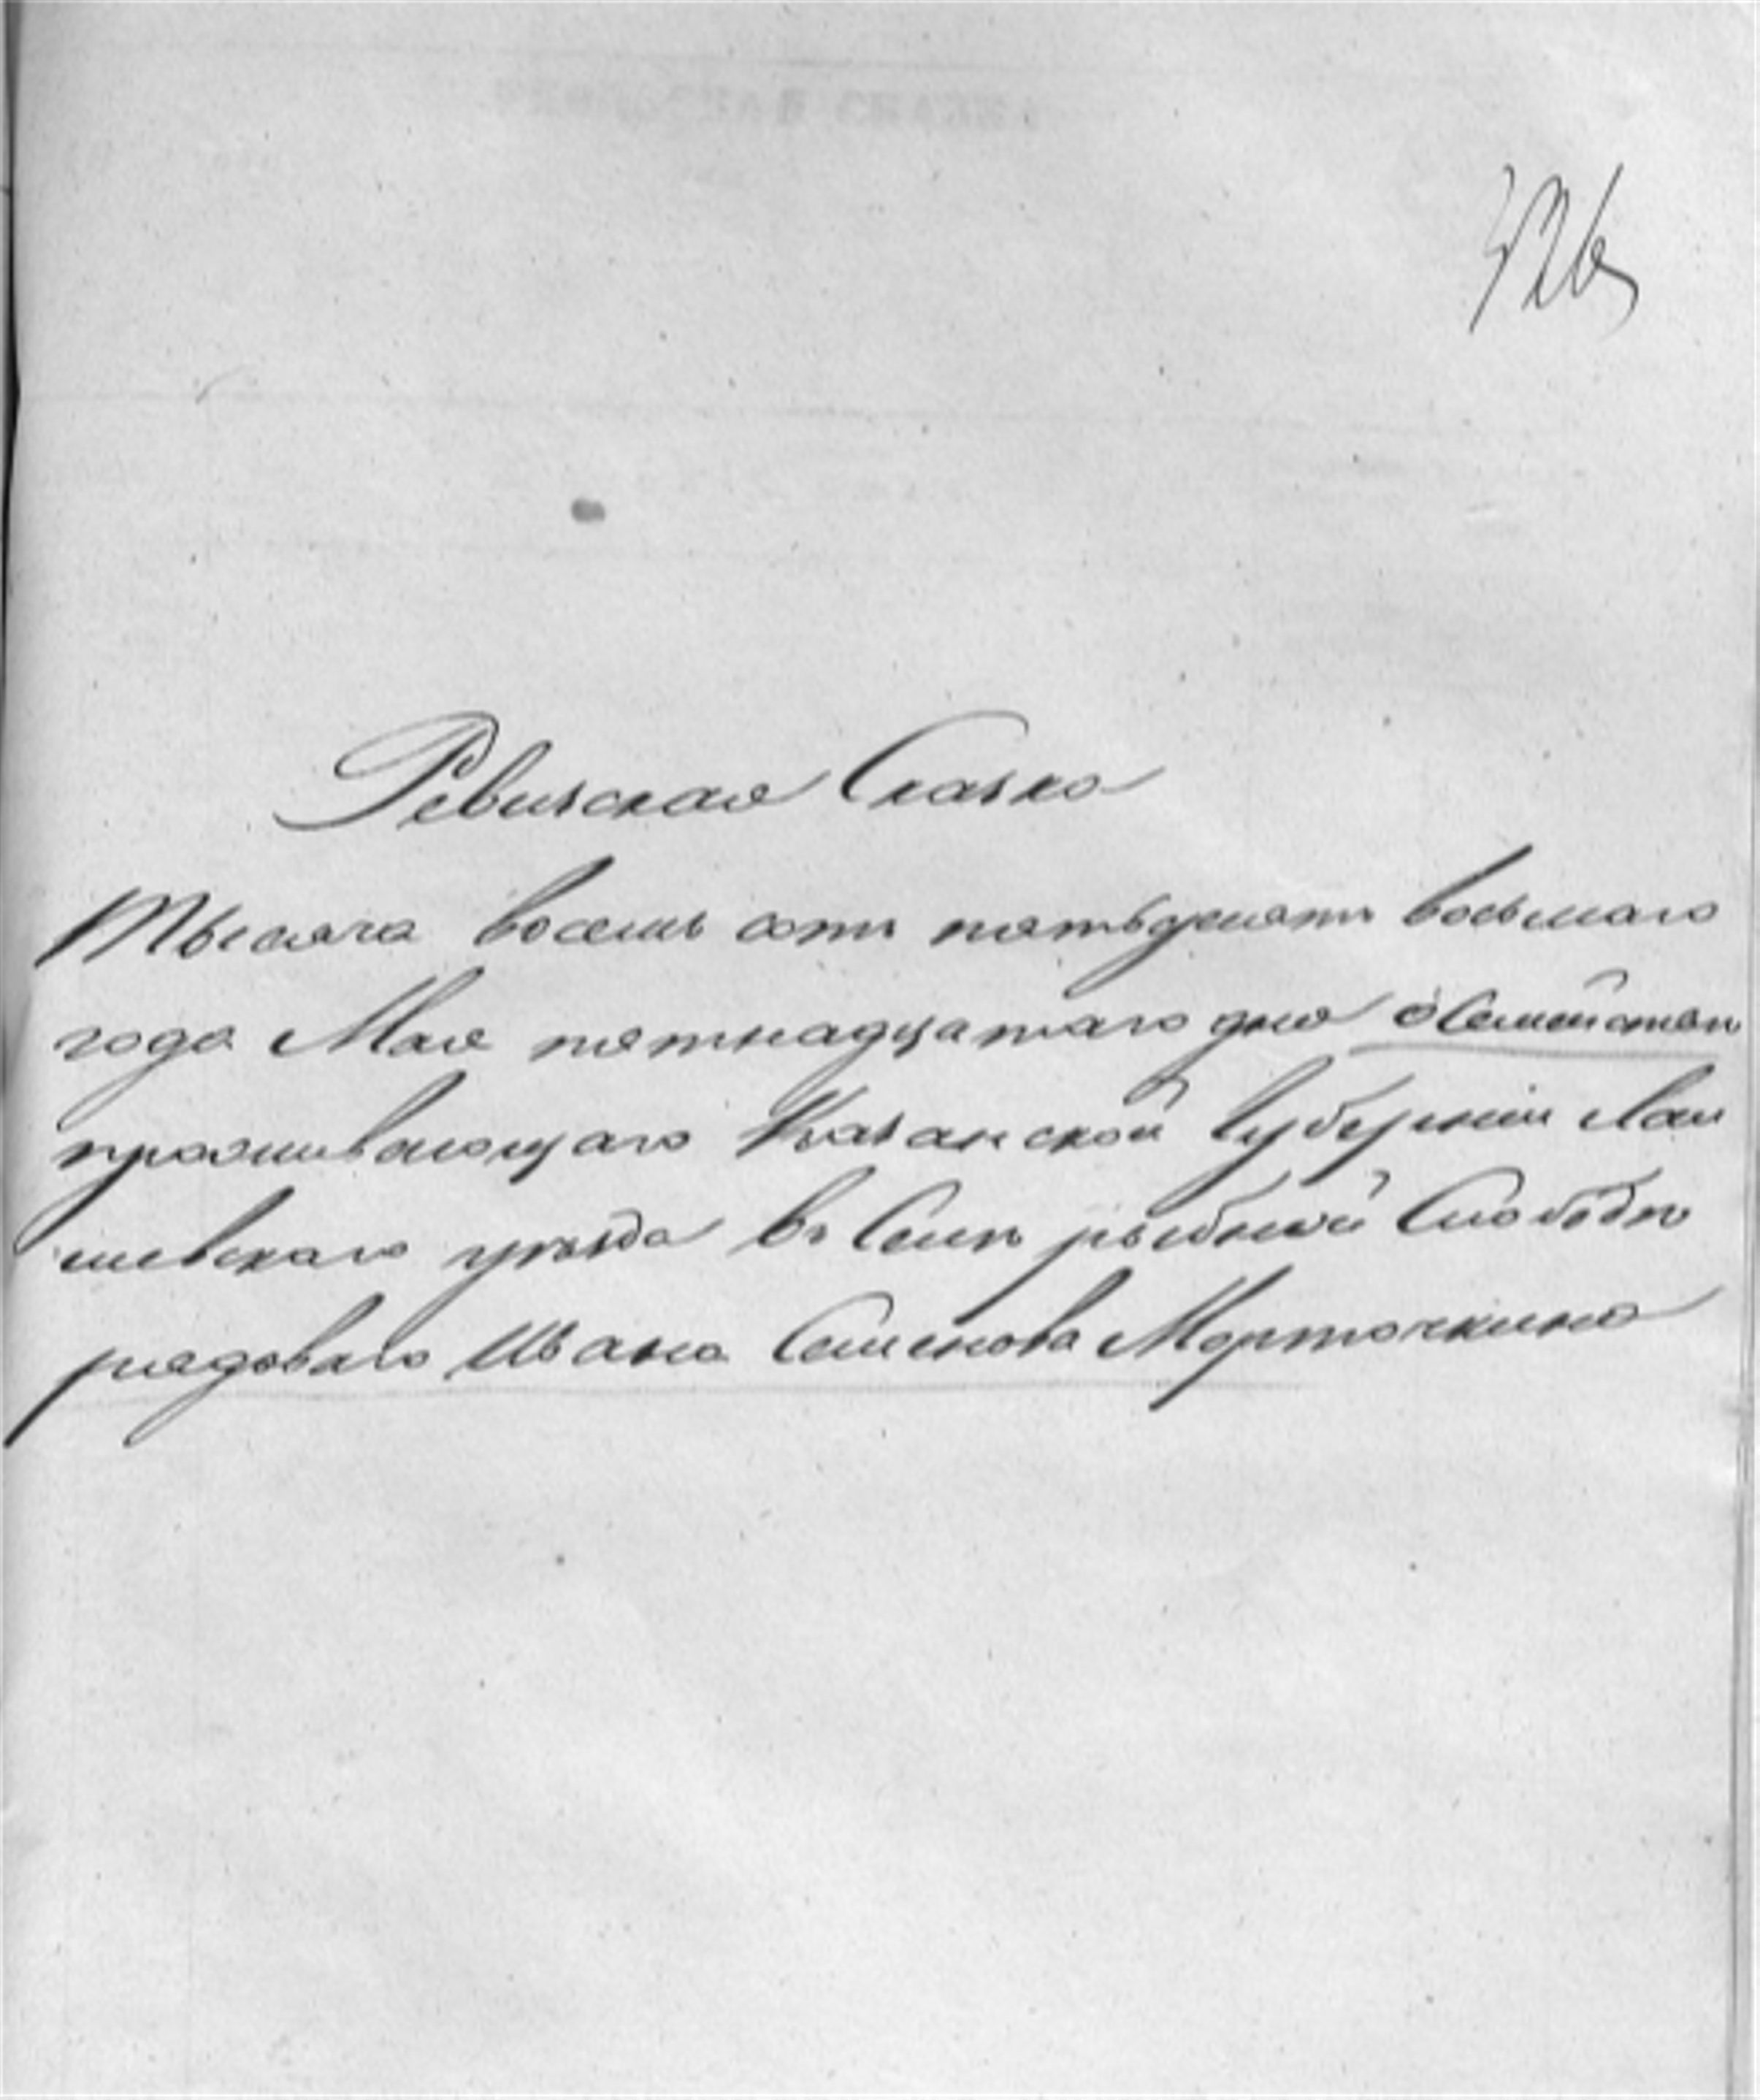 326
Ревизская Сказка
Тысяча восемь сотъ пятьдесятъ восьмаго
года Мая пятнадцатаго дня о Семействѣ
проживающаго Казанской Губерніи Лаи
шевскаго уѣзда въ Селѣ рыбной Слободѣ
рядоваго Ивана Семенова Морточкина